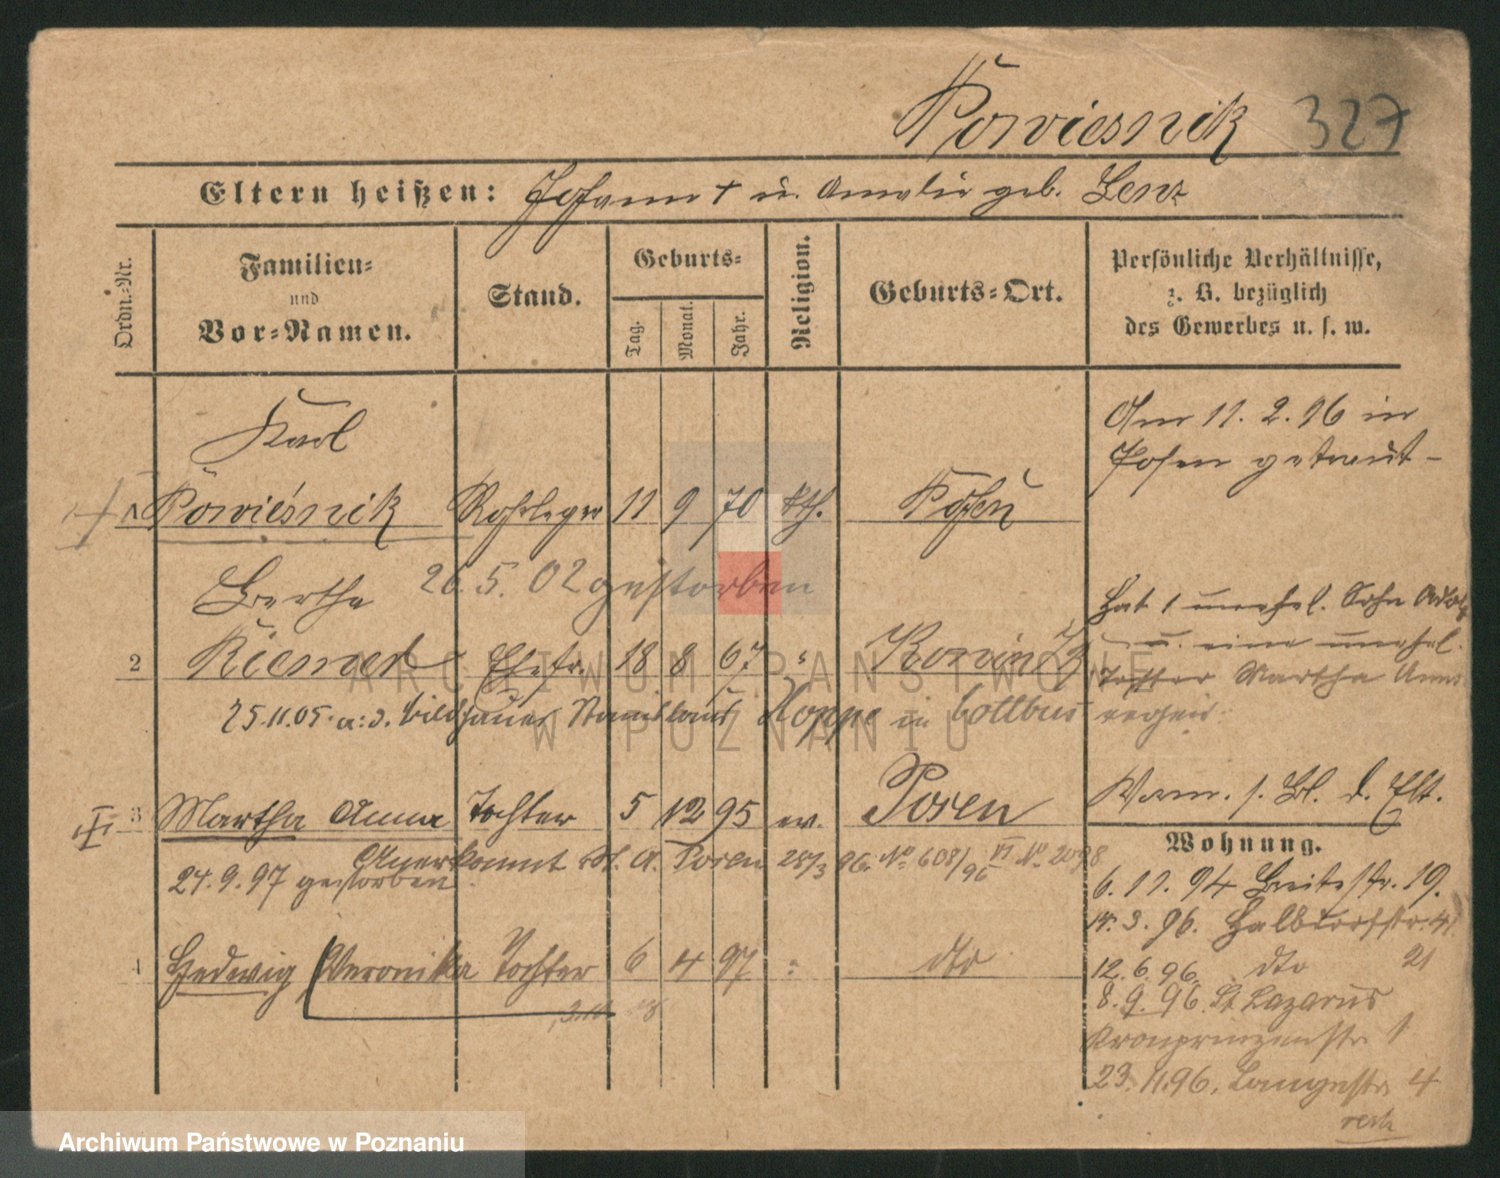 Powiesnik 327
Eltern heißen: Johann † u. Amalie geb. Lenz
Ordn.-Nr.
Familien-
und
Vor-Namen.
Stand.
Geburts-
Tag.
Monat.
Jahr.
Religion.
Geburts-Ort.
Persönliche Verhältnisse,
z. B. bezüglich
des Gewerbes u. s. w.
Karl
1 Powiesnik Rohrleger 11 9 70 kth. Posen
Am 11. 2. 96 in
Posen getraut -
Bertha 26. 5. 02 gestorben
2 Ehefr. 18 8 67
Hat 1 unehel. Sohn
u. eine unehel.
Tochter Martha Anna
25.11.05. a: d. Bildhauer Stanislaus Hoppe in Cottbus
3 Martha Anna Tochter 5 12 95 ev. Posen
d. Elt.
Anerkannt St. A. Posen 28/3 96. No 608/96 VI No
24. 9. 97 gestorben
4 Hedwig Veronika Tochter 6 4 97 dto
Wohnung.
6. 11. 94 Breitestr. 19.
14. 3. 96. Halbdorfstr. 4
12. 6. 96. dto 21
8. 9. 96. St. Lazarus
Kronprinzenstr. 1
23. 11. 96. Langestr. 4
ARCHIWUM PAŃSTWOWE
W POZNANIU
Archiwum Państwowe w Poznaniu